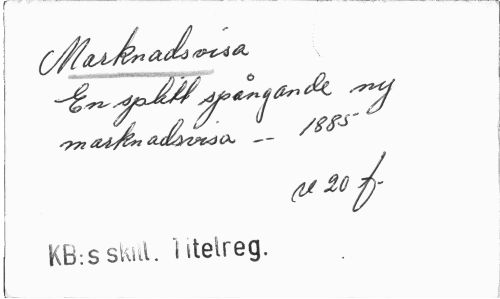 Marknadsvisa
En splitt spångande ny
marknadsvisa -- 1885
v 20 f.
KB:s skill. Titelreg.